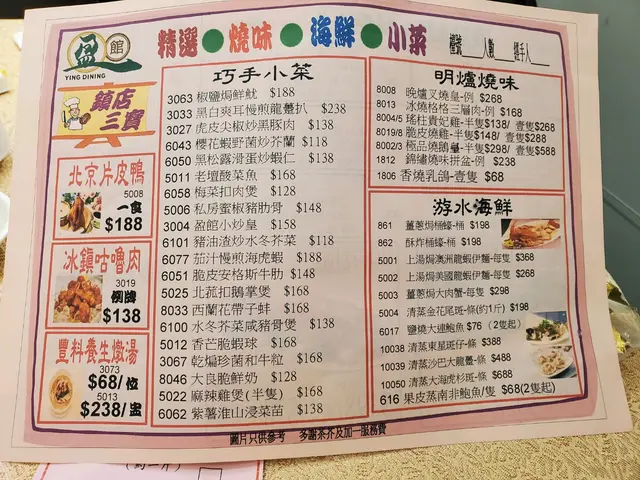 盈館
YING DINING
精選●燒味●海鮮●小菜
檯號 人數 經手人
鎮店三寶
北京片皮鴨
5008
一食
$188
冰鎮咕嚕肉
3019
例牌
$138
豐料養生燉湯
3073
$68/位
5013
$238/盅
巧手小菜
3063 椒鹽焗鮮魷 $188
3033 黑白爽耳慢煎龍躉扒 $238
3027 虎皮尖椒炒黑豚肉 $138
6043 櫻花蝦野菌炒芥蘭 $118
6050 黑松露滑蛋炒蝦仁 $138
5011 老壇酸菜魚 $168
6058 梅菜扣肉煲 $128
5006 私房蜜椒豬肋骨 $148
3004 盈館小炒皇 $158
6101 豬油渣炒水冬芥菜 $118
6077 茄汁慢煎海虎蝦 $188
6051 脆皮安格斯牛肋 $148
5025 北菰扣鵝掌煲 $168
8033 西蘭花帶子蚌 $168
6100 水冬芥菜咸豬骨煲 $138
5012 香芒脆蝦球 $168
3067 乾煸珍菌和牛粒 $168
8046 大良脆鮮奶 $128
5022 麻辣雞煲(半隻) $168
6062 紫薯淮山浸菜苗 $138
明爐燒味
8008 晚爐叉燒皇-例 $268
8013 冰燒格格三層肉-例 $168
8004/5 瑤柱貴妃雞-半隻$138/ 壹隻$268
8019/8 脆皮燒雞-半隻$148/ 壹隻$288
8002/3 極品燒鵝-半隻$298/ 壹隻$588
1812 錦繡燒味拼盆-例 $238
1806 香燒乳鴿-壹隻 $68
游水海鮮
861 薑蔥焗桶蠔-桶 $198
862 酥炸桶蠔-桶 $198
5001 上湯焗澳洲龍蝦伊麵-每隻 $368
5002 上湯焗美國龍蝦伊麵-每隻 $268
5003 薑蔥焗大肉蟹-每隻 $298
5004 清蒸金花尾斑-條(約1斤) $198
6017 鹽燒大連鮑魚 $76 (2隻起)
10038 清蒸東星斑仔-條 $388
10039 清蒸沙巴大龍躉-條 $488
10050 清蒸大海虎杉斑-條 $688
616 果皮蒸南非鮑魚/隻 $68(2隻起)
圖片只供參考 多謝茶芥及加一服務費